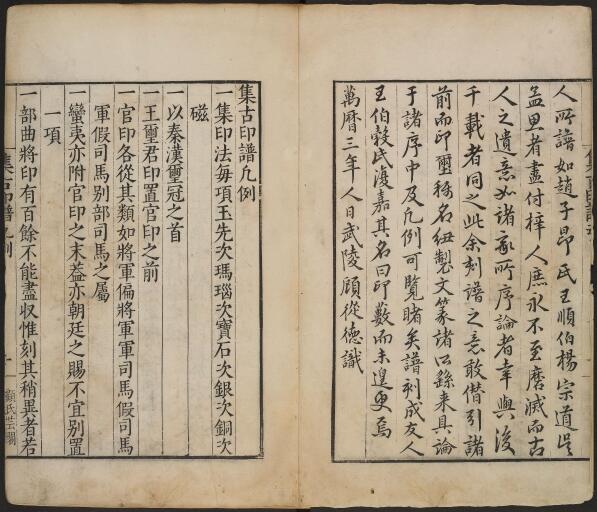 人所譜如趙子昂氏王順伯楊宗道吳
孟思者盡付梓人庶永不至磨滅而古
人之遺意如諸家所序論者幸與後
千載者同之此余刻譜之意敢僭引諸
前而印璽稱名鈕製文篆諸公錄来具論
于諸序中及凡例可覽睹矣譜刻成友人
王伯榖氏復嘉其名曰印藪而未遑更焉
萬曆三年人日武陵顧從德識
集古印譜凡例
一集印法每項玉先次瑪瑙次寶石次銀次銅次
磁
一以秦漢璽冠之首
一王璽君印置官印之前
一官印各從其類如將軍偏將軍軍司馬假司馬
軍假司馬別部司馬之屬
一蠻夷亦附官印之末葢亦朝廷之賜不宜別置
一項
一部曲將印有百餘不能盡収惟刻其稍異者若
集古印譜凡例
一
顧氏芸閣